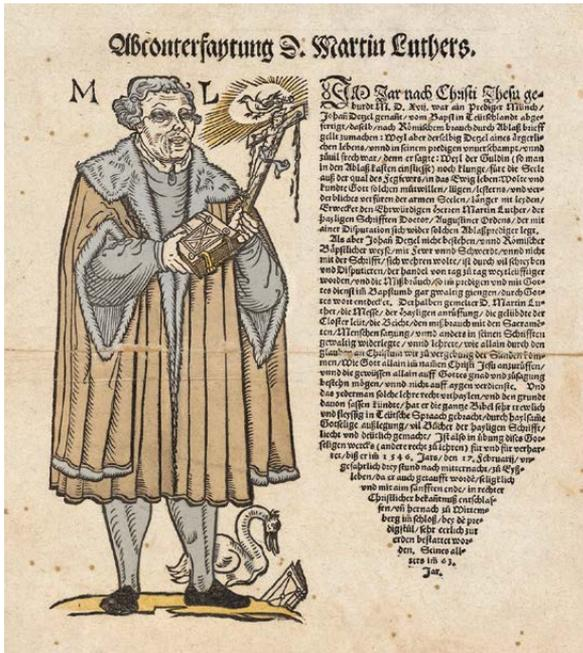 Abconterfaytung D. Martin Luthers.
M L
IM Jar nach Christi Jhesu ge-
burdt M. D. Xvij. war ain Prediger Münch/
Johañ Detzel genañt/ vom Bapst in Teütschlandt abge-
fertigt/ daselb/ nach Römischem brauch durch Ablaß brieff
gellt zumachen: Weyl aber derselbig Detzel aines ärgerli-
chen lebens/ vnnd in seinem predigen vnuerschampt/ vnnd
zůuil frech war/ denn er sagte: Weyl der Guldin (so man
in den Ablaß kasten einliesse) noch klunge/ für die Seele
auß der qual des Fegfewrs/ in das Ewig leben: Wolte vnd
kundte Gott solchen můtwillen/ lügen/ lesterns/ vnd ver-
derbliches verfüren der armen Seelen/ länger nit leyden/
Erwecket den Ehrwürdigen Herren Martin Luther/ der
hayligen Schrifften Doctor/ Augustiner Ordens/ der mit
ainer Disputation sich wider solchen Ablaßprediger legt.
Als aber Johañ Detzel nicht bestehen/ vnnd Römischer
Bäpstlicher weyse/ mit Fewr vnnd Schwerdt/ vnnd nicht
mit der Schrifft/ sich wehren wolte/ ist durch vil schreyben
vnd Disputieren/ der handel von tag zů tag weytleüffiger
worden/ vnd die Mißbräuch/ so im predigen vnd mit Got-
tes dienst im Bapstumb gar gwaltig giengen/ durch Got-
tes wort entdecket, Derhalben gemelter D. Martin Lu-
ther/ die Messe/ der hayligen anrüffung/ die gelübdte der
Closter leüt/ die Beicht/ den mißbrauch mit den Sacramẽ-
ten/ Menschen satzung/ vnnd anders in seinen Schrifften
gewaltig widerlegte/ vnnd lehret/ wie allain durch den
glauben an Christum wir zů vergebung der Sünden kom-
men/ Wie Gott allain im namen Christi Jesu anzůrüffen/
vnnd die gewissen allain auff Gottes gnad vnd zůsagung
bestehn mögen/ vnnd nicht auff aygen verdienste. Vnd
das yederman solche lehre recht vrthaylen/ vnd den grundt
dauon fassen kündte/ hat er die gantze Bibel sehr trewlich
vnd fleyssig in Teütsche Spraach gebracht/ durch haylsame
Gotselige außlegung/ vil Bücher der hayligen Schrifft/
liecht vnd deütlich gemacht/ Ist also in übung dises Got-
seligen wercks (andere recht zů lehren) für vnd für verhar-
ret/ biß er im 1546. Jars/ den 17. Februarij/ vn-
gefährlich drey stund nach mitternacht/ zů Eyß-
leben/ da er auch getaufft wordẽ/ seligklich
vnd mit aim sanfften ende/ in rechter
Christlicher bekañtnuß entschlaf-
fen/ vñ hernach zů Wittem-
berg im schloß/ bey dẽ pre-
digstůl/ sehr eerlich zur
erden bestattet wor-
den, Seines all-
ters im 63.
Jar.